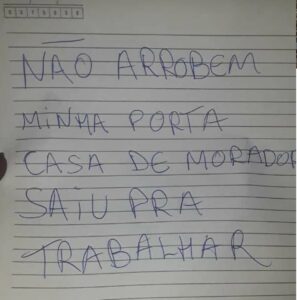 NÃO ARROBEM
MINHA PORTA
CASA DE MORADOR
SAIU PRA
TRABALHAR